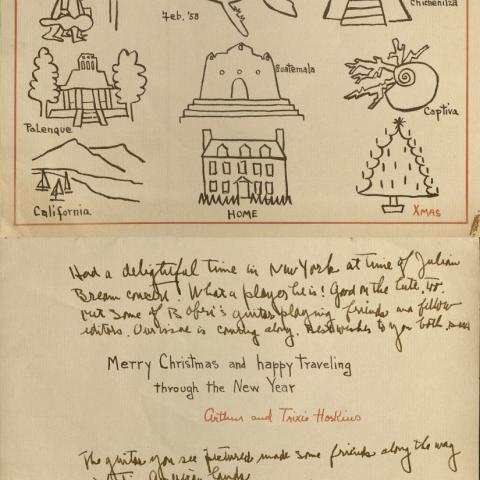 Feb. '58
Chichenitza
Guatemala
Palenque
Captiva
California
HOME
XMAS
Had a delightful time in New York at time of Julian
Bream concert! What a player he is! Good on the lute, too.
Met some of Bobri's guitar playing friends and fellow
editors. Our issue is coming along. Best wishes to you both,
Merry Christmas and happy traveling
through the New Year
Arthur and Trixie Hoskins
The guitar you see pictured made some friends along the way
American lands